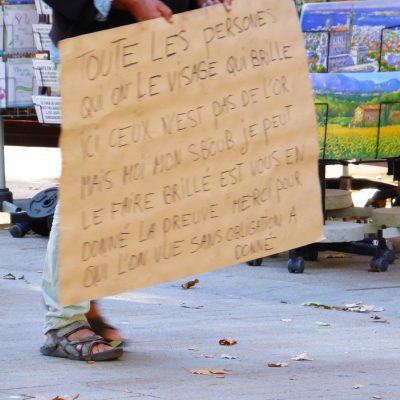 TOUTE LES PERSONES
QUI ONT LE VISAGE QUI BRILLE
ICI CEUX N'EST PAS DE L'OR
MAIS MOI MON SBOUB JE PEUT
LE FAIRE BRILLÉ EST VOUS EN
DONNÉ LA PREUVE MERCI POUR
QUI L'ON VUE SANS OBLIGATION A
DONNÉ